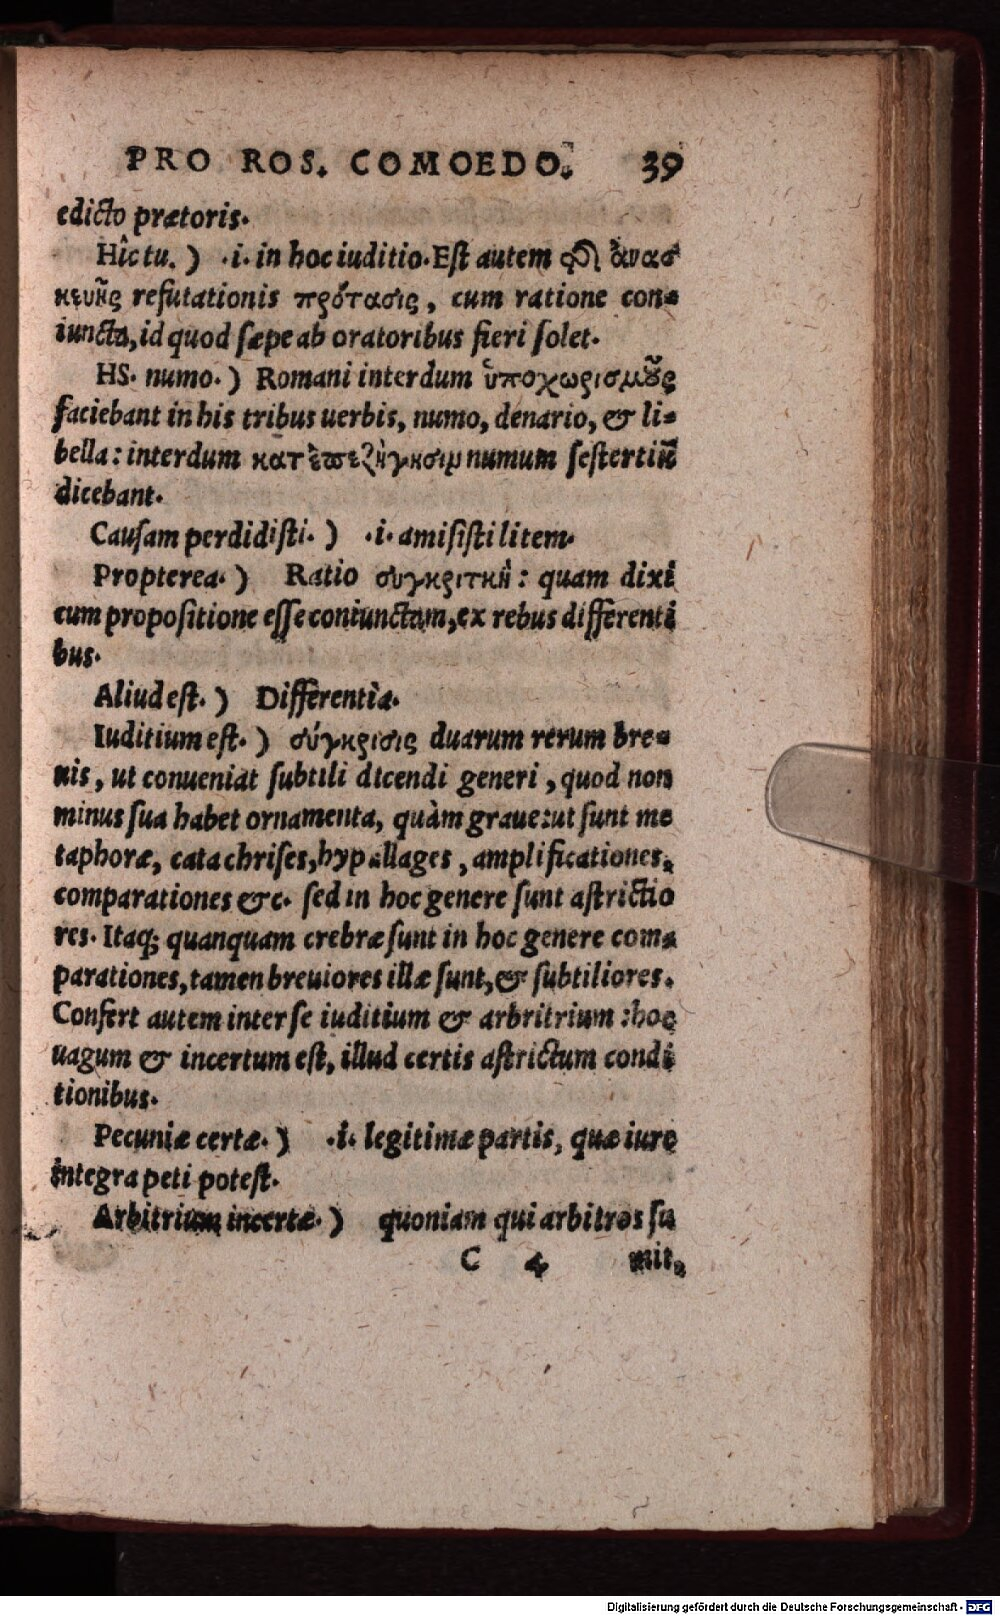 PRO ROS. COMOEDO. 39
edicto prætoris.
Hîc tu. ) .i. in hoc iuditio. Est autem ἀνασ
κευῆς refutationis πρότασις, cum ratione con=
iuncta, id quod sæpe ab oratoribus fieri solet.
HS. numo. ) Romani interdum ὑποχωρισμοῦς
faciebant in his tribus uerbis, numo, denario, & li=
bella: interdum κατ' ἐπεξήγησιν numum sestertiũ
dicebant.
Causam perdidisti. ) .i. amisisti litem.
Propterea. ) Ratio συγκριτικὴ: quam dixi
cum propositione esse coniunctam, ex rebus differenti
bus.
Aliud est. ) Differentia.
Iuditium est. ) σύγκρισις duarum rerum bre=
uis, ut conueniat subtili dicendi generi, quod non
minus sua habet ornamenta, quàm graue: ut sunt me
taphoræ, catachrises, hypallages, amplificationes,
comparationes &c. sed in hoc genere sunt astrictio
res. Itaq; quanquam crebræ sunt in hoc genere com=
parationes, tamen breuiores illæ sunt, & subtiliores.
Confert autem inter se iuditium & arbritrium : hoc
uagum & incertum est, illud certis astrictum condi
tionibus.
Pecuniæ certæ. ) .i. legitimæ partis, quæ iure
integra peti potest.
Arbitrium incertæ. ) quoniam qui arbitros su
C 4 mit,
Digitalisierung gefördert durch die Deutsche Forschungsgemeinschaft - DFG